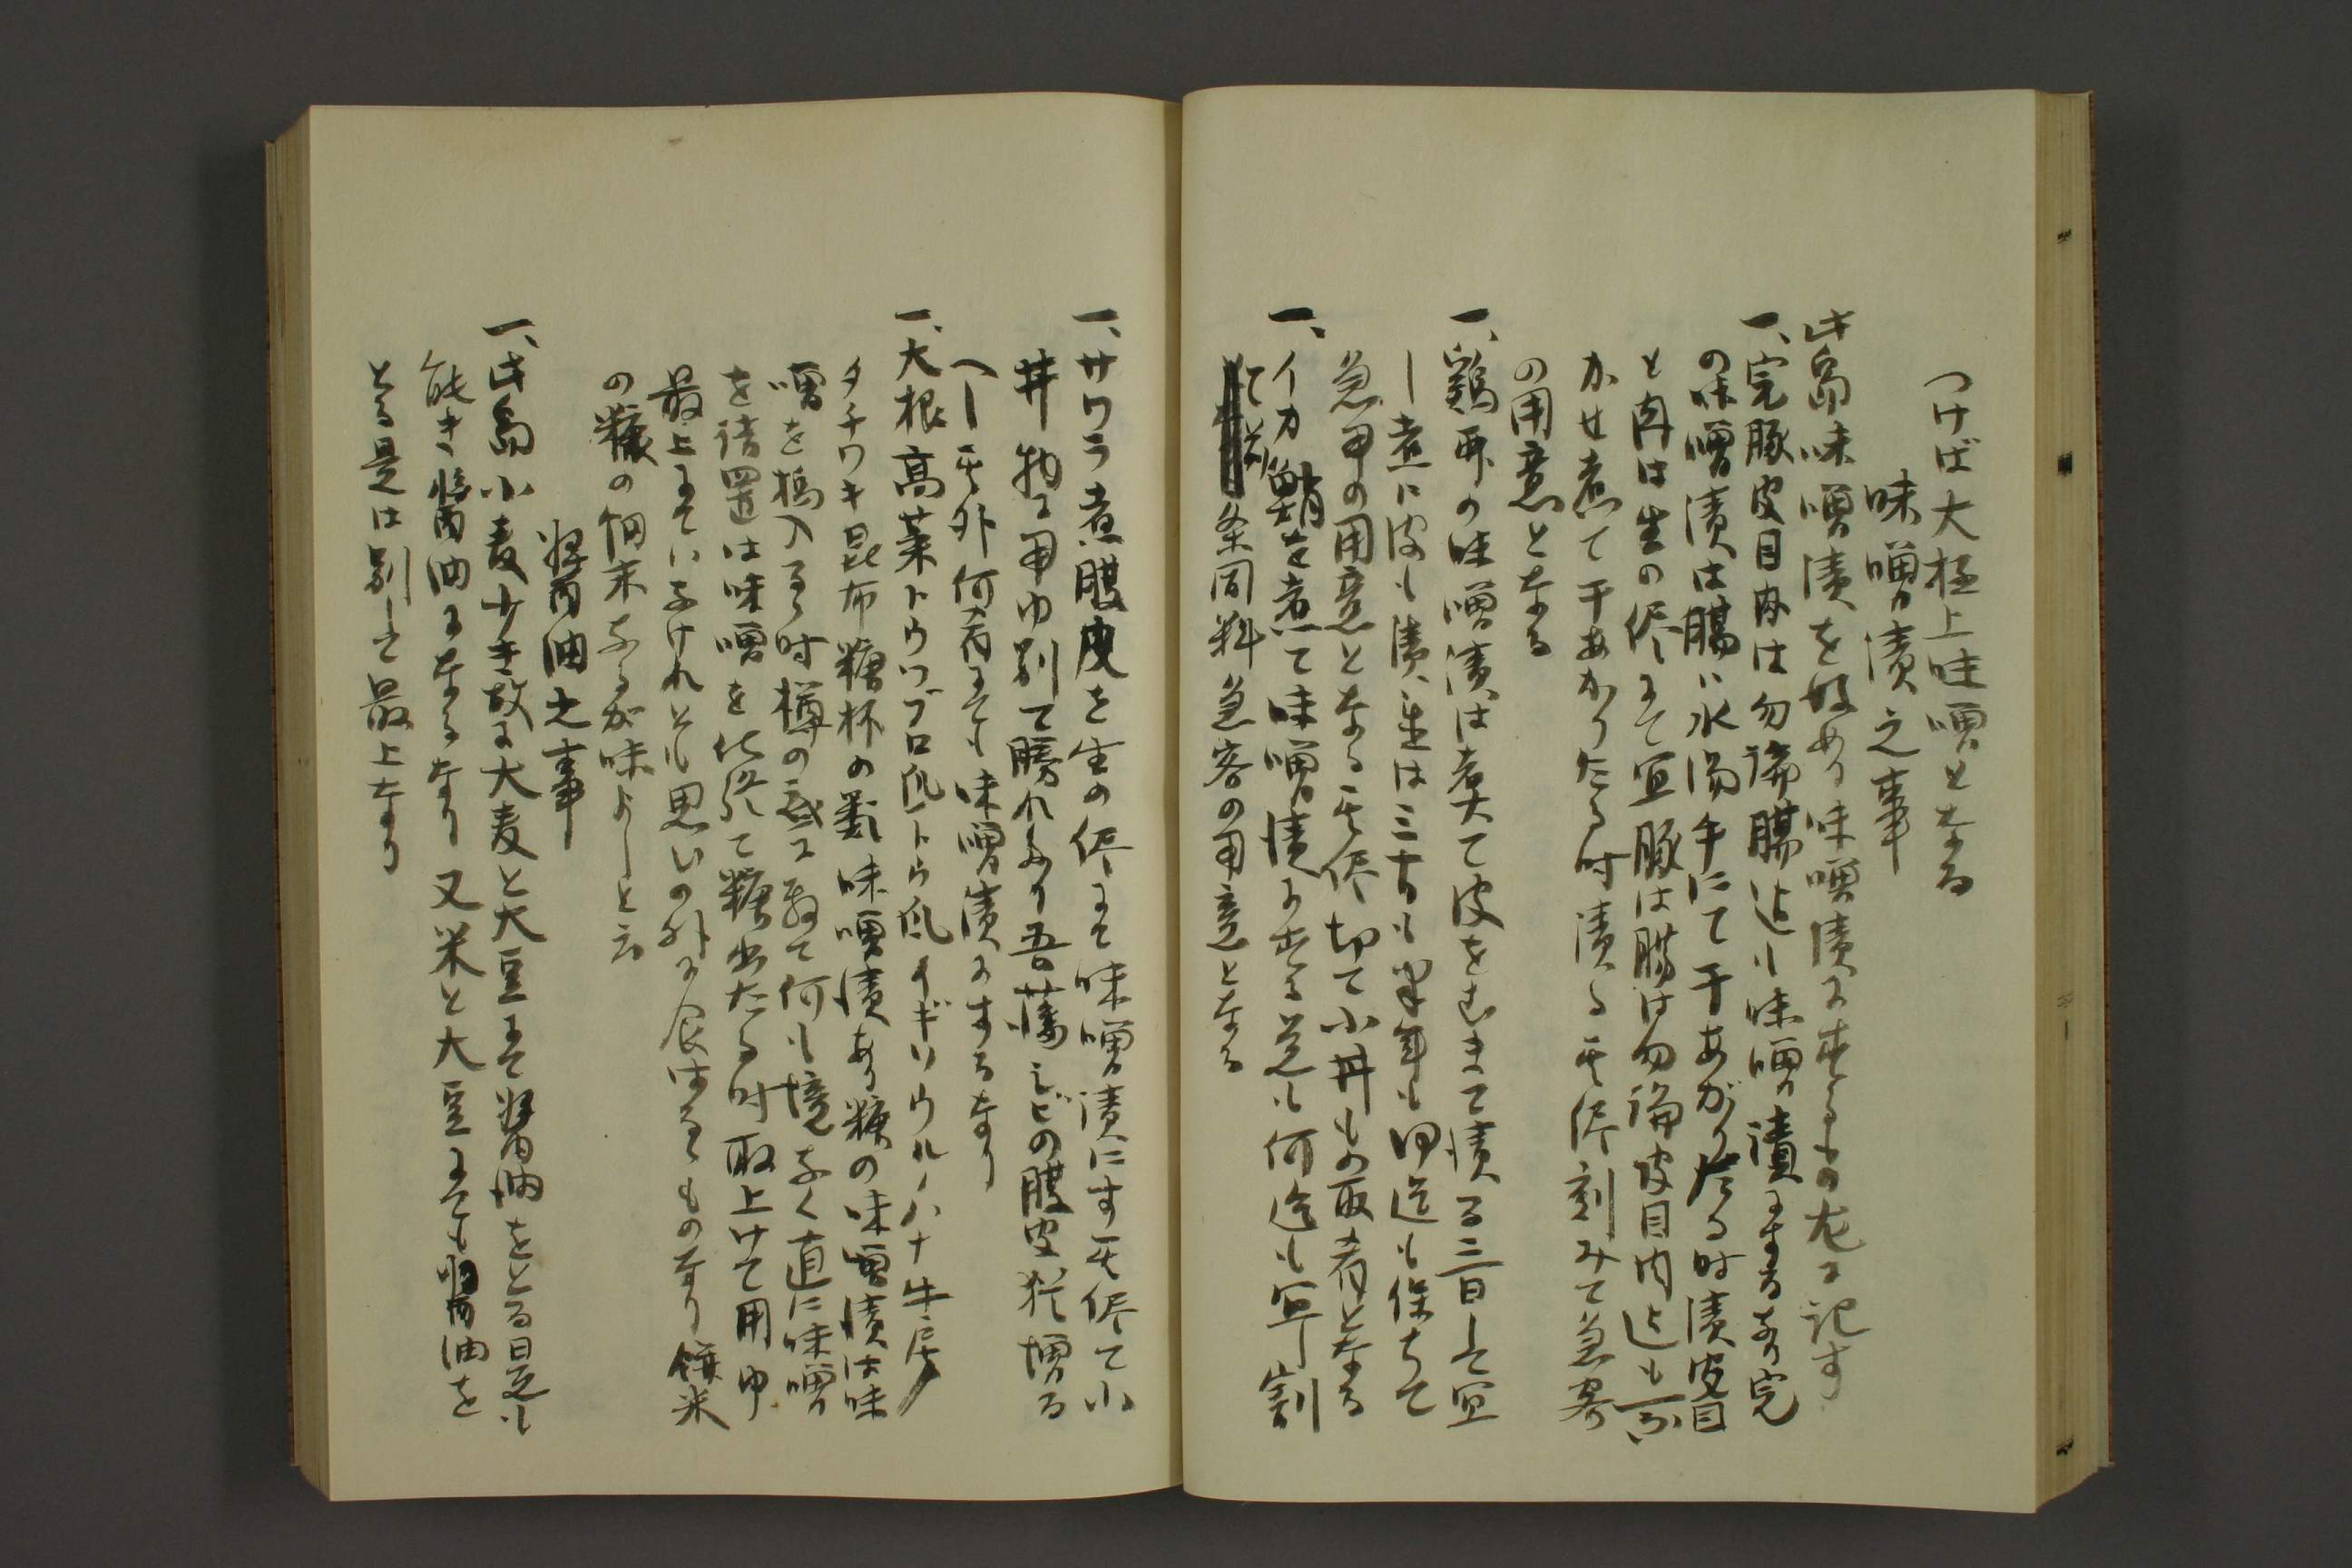 つけば大極上味噌となる
味噌漬之事
此島味噌漬を好めり味噌漬に出るもの左に記す
一、完豚皮目肉は勿論腸迄も味噌漬にするなり完
の味噌漬は腸に水湯手にて干あがりたる時漬皮目
と肉は生の侭にて宜豚は腸は勿論皮目肉迄も
かせ煮て干あかりたる時漬る其侭刻みて急客
の用意となる
一、鶏の味噌漬は煮て皮をむきて漬る三日して宜
し煮に皮も漬は三十日も半年も何迄も保ちて
急用の用意となる其侭切て小丼もの取肴となる
一、イカ鮹を煮て味噌漬に出る是も何迄も宜割
て条同料急客の用意となる
一、サワラ煮腹皮を生の侭にて味噌漬にす其侭て小
丼物に用ゆ別て勝れあり吾藩シビの腹皮猶増る
へし其外何肴にても味噌漬にするなり
一、大根高菜トウツブロ瓜トウ瓜イギリウルノハナ牛房
タチワキ昆布糖杯の類味噌漬あり糠の味噌漬は味
噌を搗入る時樽の底に敷て何も境なく直に味噌
を詰置は味噌を仕終て糖出たる時取上けて用ゆ
最上にていなけれとも思いの外に食はるゝもの也り餅米
の糠の細末なるが味よしと云
醤油之事
一、此島小麦少き故に大麦と大豆にて醤油をとる是も
能き醤油になるなり又米と大豆にても醤油を
とる是は別して最上なり